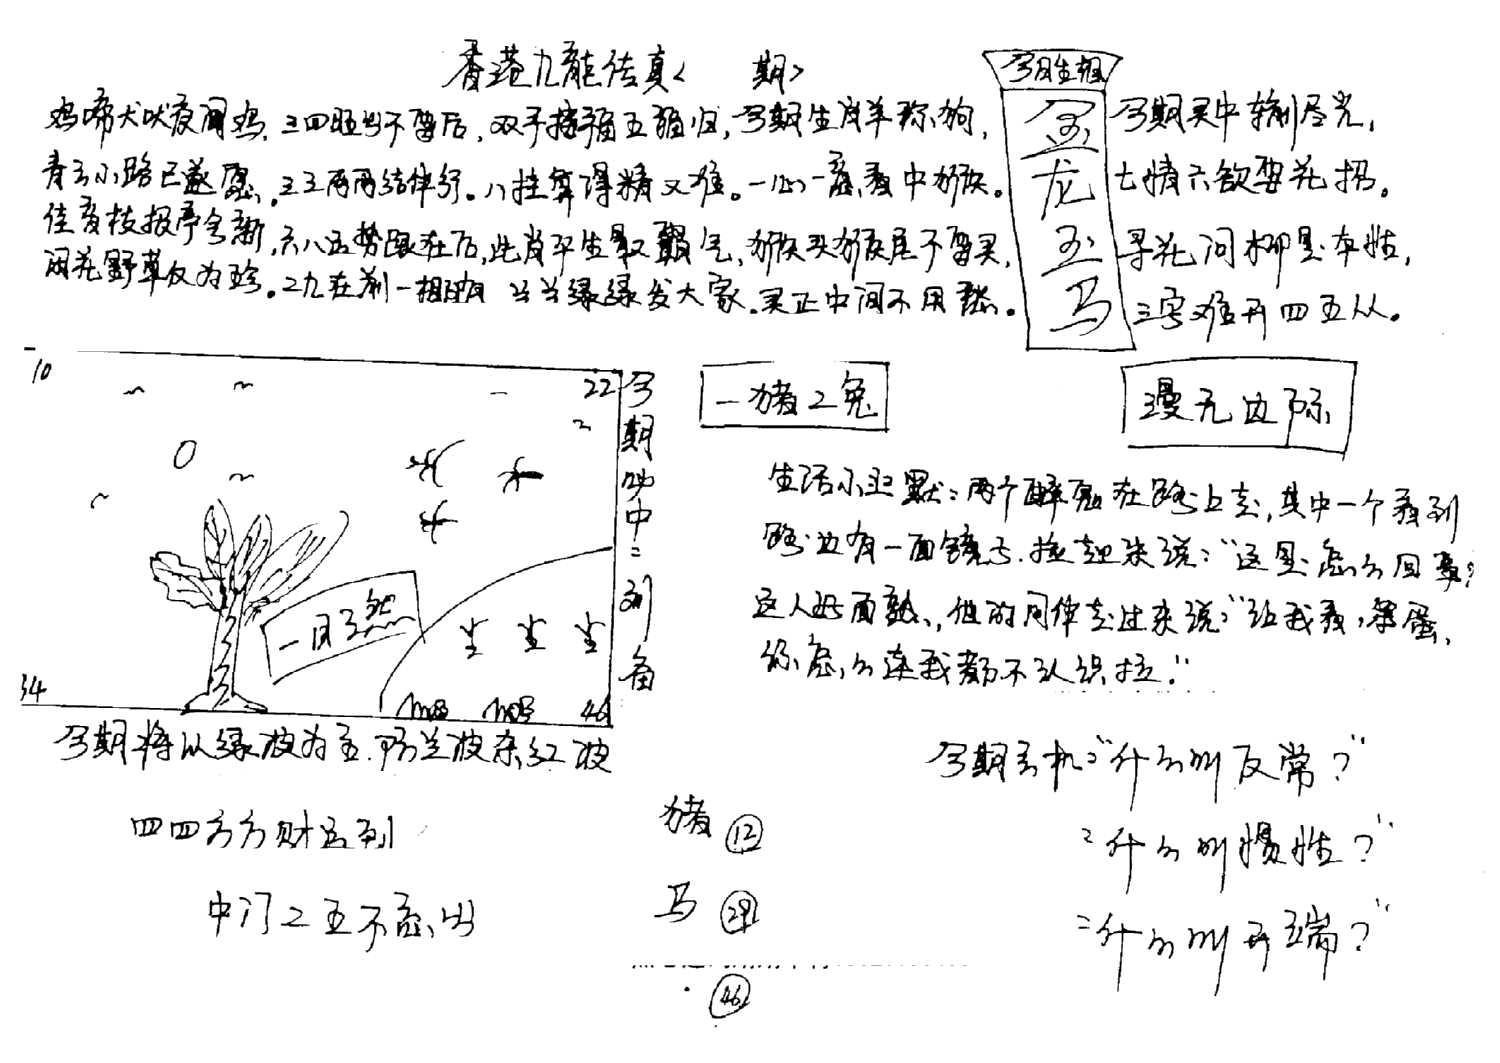 香港九龍传真< 期>
鸡啼犬吠夜闻鸡,三四旺出不留后,双手接福五福归,今期生肖羊称狗,
青云小路已遂愿,三三两两结伴行。八挂算得精又准。一心一意看中猴。
佳音枝报季令新,六八五势跟在后,此肖平生最霸气,猴头猴尾不要买,
闲花野草仅为珍。二九在前一相随 兰兰绿绿发大家。买正中间不用愁。
今期生相
金龙玉马
今期买中输尽光,
七情六欲要花招。
寻花问柳是本性,
三字难开四五从。
10
22
34
46
一目了然
今期必中二列备
一猪2兔
漫无边际
生活小幽默:两个醉鬼在路上走,其中一个看到
路边有一面镜子.捡起来说:"这是怎么回事?
这人好面熟,他的同伴走过来说:"让我看,笨蛋,
你怎么连我都不认识拉."
今期将以绿波为主.防兰波杂红波
四四方方财运到
中门2五不意出
猪 12
马 29
46
今期玄机:"什么叫反常?"
:"什么叫惯性?"
:"什么叫开端?"